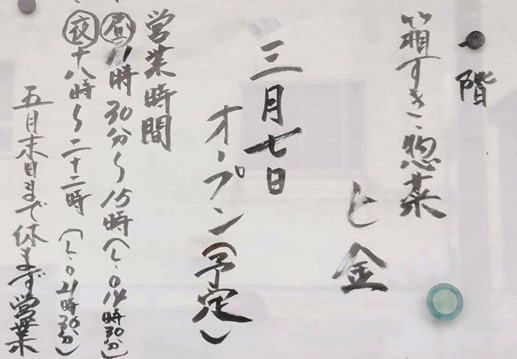 一階
箱すき 惣菜
と金
三月七日
オープン(予定)
営業時間
昼 11時30分〜15時(L.O14時30分)
夜 十八時〜二十二時(L.O21時30分)
五月末日まで休まず営業